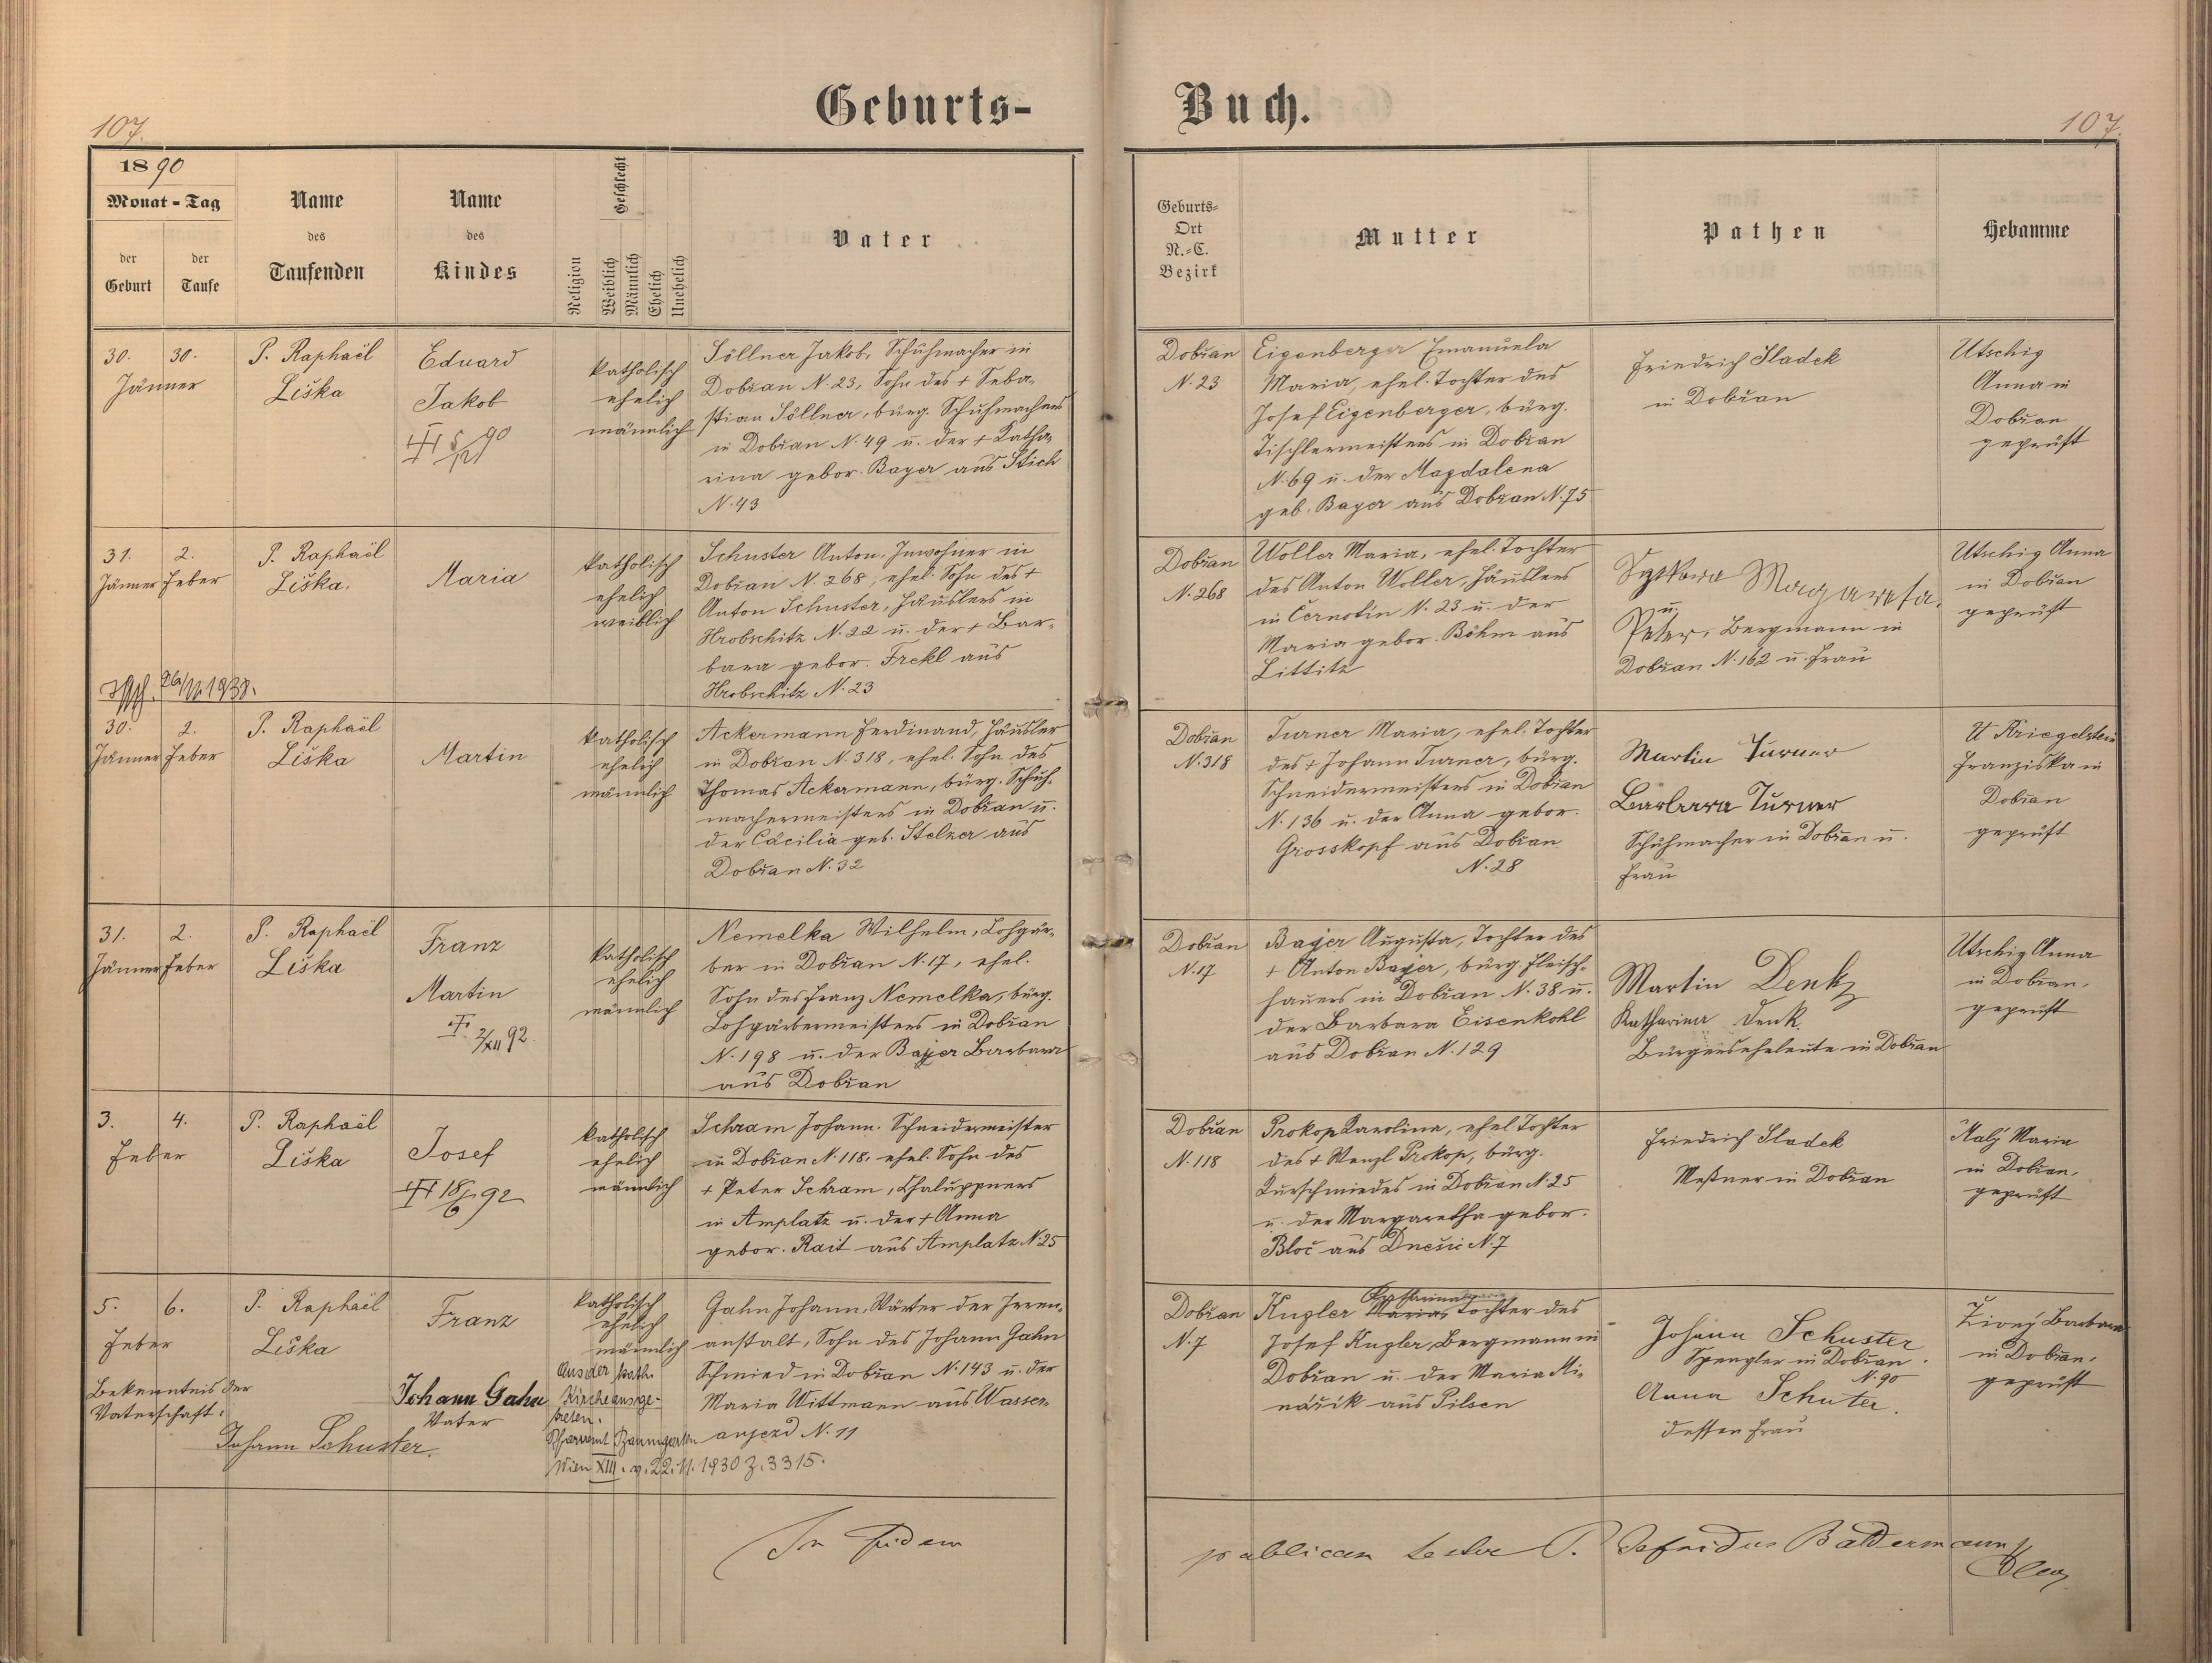 Geburts- Buch.
107. 107.
1890
Monat - Tag
der Geburt
der Taufe
Name des Taufenden
Name des Kindes
Religion
Geschlecht
Weiblich
Männlich
Ehelich
Unehelich
Vater
Geburts-
Ort
N.-C.
Bezirk
Mutter
Pathen
Hebamme
30. 30.
Jänner
P. Raphaël
Liška
Eduard
Jakob
katholisch
ehelich
männlich
Söllner Jakob, Schuhmacher in
Dobřan N. 23, Sohn des + Seba-
stian Söllner, bürg. Schuhmachers
in Dobřan N. 49 u. der + Katha-
rina gebor. Bayer aus Stich
N. 43
Dobřan
N. 23
Eigenberger Emanuela
Maria, ehel. Tochter des
Josef Eigenberger, bürg.
Tischlermeisters in Dobřan
N. 69 u. der Magdalena
geb. Bayer aus Dobřan N. 75
Friedrich Sladek
in Dobřan
Utschig
Anna in
Dobřan
geprüft
31. 2.
Jänner Feber
P. Raphaël
Liška.
Maria
katholisch
ehelich
weiblich
Schuster Anton, Inwohner in
Dobřan N. 268, ehel. Sohn des +
Anton Schuster, Häuslers in
Hrobschitz N. 22 u. der + Bar-
bara gebor. Frckl aus
Hrobschitz N. 23
Dobřan
N. 268
Woller Maria, ehel. Tochter
des Anton Woller, Häuslers
in Černotin N. 23 u. der
Maria gebor. Böhm aus
Littitz
u.
Peter, Bergmann in
Dobřan N. 162 u. Frau
Utschig Anna
in Dobřan
geprüft
1938.
30. 2.
Jänner Feber
P. Raphaël
Liška
Martin
katholisch
ehelich
männlich
Ackermann Ferdinand, Häusler
in Dobřan N. 318, ehel. Sohn des
Thomas Ackermann, bürg. Schuh-
machermeisters in Dobřan u.
der Cäcilia geb. Stelzer aus
Dobřan N. 32
Dobřan
N. 318
Turner Maria, ehel. Tochter
des + Johann Turner, bürg.
Schneidermeisters in Dobřan
N. 136 u. der Anna gebor.
Grosskopf aus Dobřan
N. 28
Martin Turner
Barbara Turner
Schuhmacher in Dobřan u.
Frau
Kriegelstein
Franziska in
Dobřan
geprüft
31. 2.
Jänner Feber
P. Raphaël
Liška
Franz
Martin
2/XII 92.
katholisch
ehelich
männlich
Nemelka Wilhelm, Lohgär-
ber in Dobřan N. 17, ehel.
Sohn des Franz Nemelka, bürg.
Lohgärbermeisters in Dobřan
N. 198 u. der Bayer Barbara
aus Dobřan
Dobřan
N. 17
Bayer Augusta, Tochter des
+ Anton Bayer, bürg. Fleisch-
hauers in Dobřan N. 38 u.
der Barbara Eisenkohl
aus Dobřan N. 129
Martin Denk
Katharina Denk
Bürgerseheleute in Dobřan
Utschig Anna
in Dobřan,
geprüft
3. 4.
Feber
P. Raphaël
Liška
Josef
katholisch
ehelich
männlich
Schram Johann, Schneidermeister
in Dobřan N. 118, ehel. Sohn des
+ Peter Schram, Chaluppners
in Amplatz u. der + Anna
gebor. Rait aus Amplatz N. 25
Dobřan
N. 118
Prokop Karolina, ehel. Tochter
des + Wenzl Prokop, bürg.
Kurschmiedes in Dobřan N. 25
u. der Margaretha gebor.
Bloč aus Dnešic N. 7
Friedrich Sladek
Meßner in Dobřan
Malý Maria
in Dobřan,
geprüft
5. 6.
Feber
P. Raphaël
Liška
Franz
katholisch
ehelich
männlich
Gahn Johann, Wärter der Irren-
anstalt, Sohn des Johann Gahn
Schmied in Dobřan N. 143 u. der
Maria Wittmann aus Wasser-
aujezd N. 11
Dobřan
N. 7
Katharina
Kuzler Maria, Tochter des
Josef Kuzler, Bergmann in
Dobřan u. der Maria Mi-
nářik aus Pilsen
Johann Schuster
Spengler in Dobřan
N. 90
Anna Schuter.
dessen Frau
Barbara
in Dobřan,
geprüft
Bekenntnis der
Vaterschaft:
Johann Gahn
Vater
Johann Schuster.
Aus der kath.
Kirche ausge-
treten.
Pfarramt Baumgarten
Wien XIII. v. 22. 11. 1930 Z. 3315.
In fidem
publicam P. Baldermann